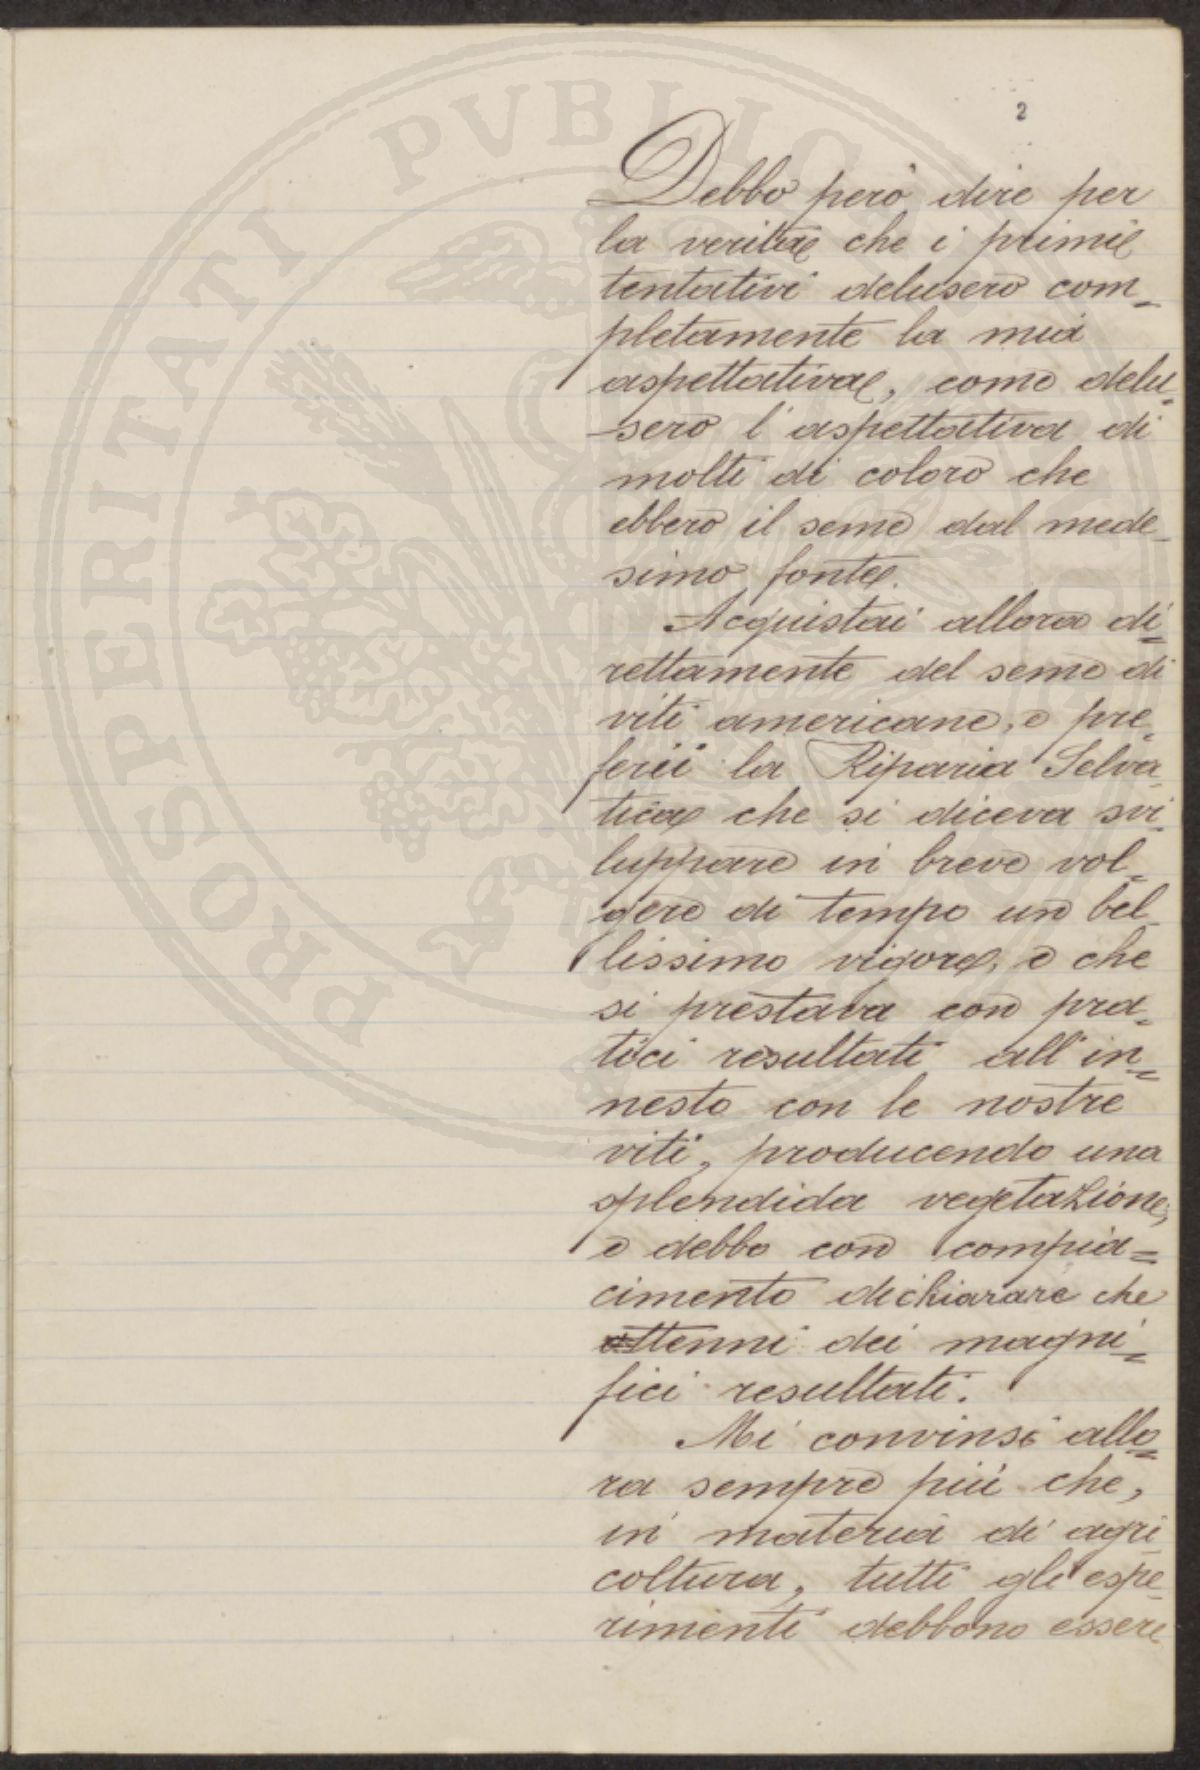 2
Debbo però dire per
la verità che i primi
tentativi delusero com=
pletamente la mia
aspettativa, come delu=
sero l'aspettativa di
molti di coloro che
ebbero il seme dal mede_
simo fonte.
Acquistai allora di=
rettamente del seme di
viti americane, e pre_
ferii la Riparia Selva_
tica che si diceva svi_
luppare in breve vol_
gere di tempo un bel_
lissimo vigore, e che
si prestava con pra=
tici resultati all'in=
nesto con le nostre
viti, producendo una
splendida vegetazione,
e debbo con compia=
cimento dichiarare che
ottenni dei magni=
fici resultati.
Mi convinsi allo=
ra sempre più che,
in materia di agri_
coltura, tutti gli espe_
rimenti debbono essere
PROSPERITATI PVBLICAE